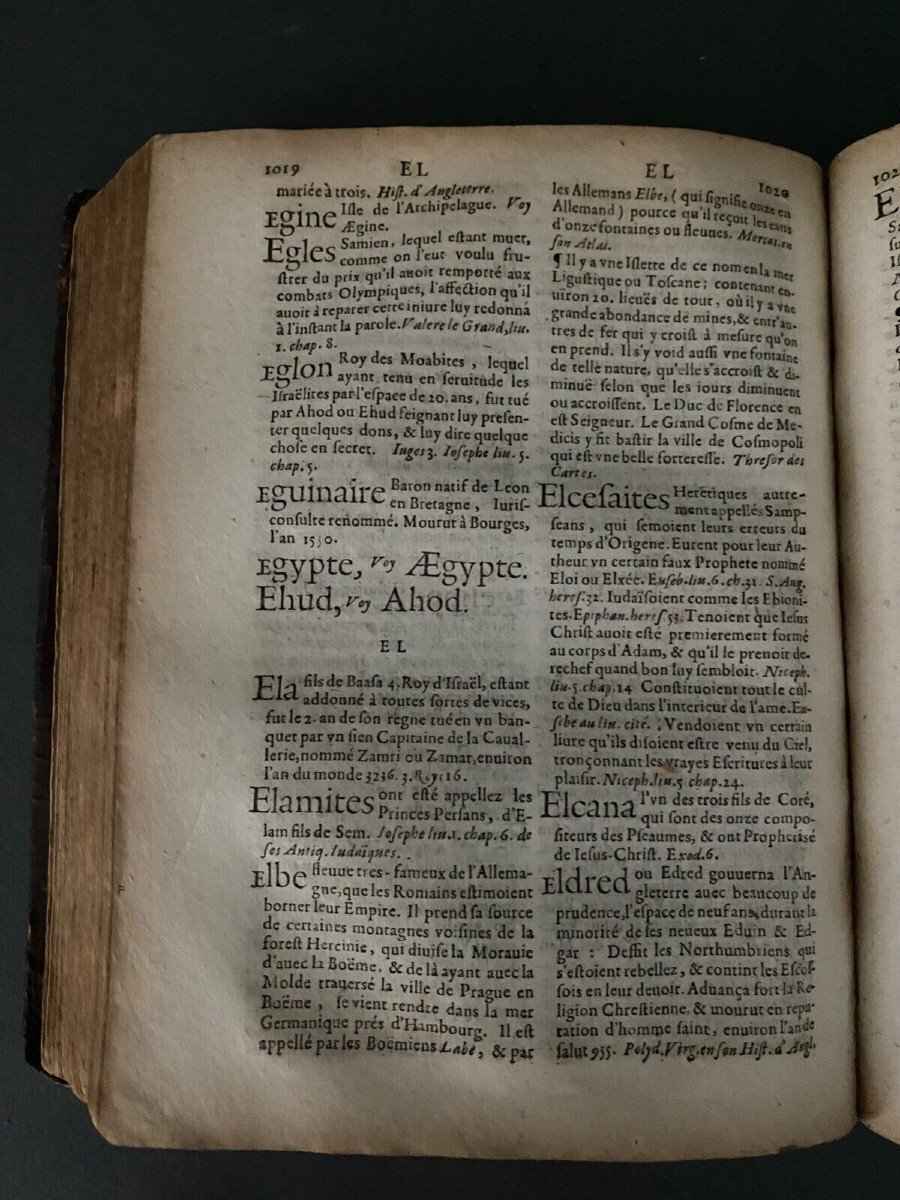 1019 EL
mariée à trois. Hiſt. d'Angleterre.
Egine Iſle de l'Archipelague. Voy
Ægine.
Egles Samien, lequel eſtant muet,
comme on l'eut voulu fru-
ſtrer du prix qu'il auoit remporté aux
combats Olympiques, l'affection qu'il
auoit à reparer cette iniure luy redonna
à l'inſtant la parole. Valere le Grand, liu.
1. chap. 8.
Eglon Roy des Moabites, lequel
ayant tenu en ſeruitude les
Iſraëlites par l'eſpace de 20. ans, fut tué
par Ahod ou Ehud feignant luy preſen-
ter quelques dons, & luy dire quelque
choſe en ſecret. Iuges 3. Ioſephe liu. 5.
chap. 5.
Eguinaire Baron natif de Leon
en Bretagne, Iuriſ-
conſulte renommé. Mourut à Bourges,
l'an 1550.
Egypte, Voy Ægypte.
Ehud, voy Ahod.
EL
Ela fils de Baaſa 4. Roy d'Iſraël, eſtant
addonné à toutes ſortes de vices,
fut le 2. an de ſon règne tué en vn ban-
quet par vn ſien Capitaine de la Caual-
lerie, nommé Zamri ou Zamar, enuiron
l'an du monde 3236. 3. Roys 16.
Elamites ont eſté appellez les
Princes Perſans, d'E-
lam fils de Sem. Ioſephe liu. 1. chap. 6. de
ſes Antiq. Iudaïques.
Elbe fleuue tres-fameux de l'Allema-
gne, que les Romains eſtimoient
borner leur Empire. Il prend ſa ſource
de certaines montagnes voiſines de la
foreſt Hercinie, qui diuiſe la Morauie
d'auec la Boëme, & de là ayant auec la
Molde trauersé la ville de Prague en
Boëme, ſe vient rendre dans la mer
Germanique prés d'Hambourg. Il eſt
appellé par les Boëmiens Labé, & par
EL 1020
les Allemans Elbe, (qui ſignifie onze en
Allemand) pource qu'il reçoit les eaus
d'onze fontaines ou fleuues. Mercat. en
ſon Atlas.
¶ Il y a vne Iſlette de ce nom en la mer
Liguſtique ou Toſcane; contenant en-
uiron 20. lieuës de tour, où il y a vne
grande abondance de mines, & entr'au-
tres de fer qui y croiſt à meſure qu'on
en prend. Il s'y void auſſi vne fontaine
de telle nature, qu'elle s'accroiſt & di-
minuë ſelon que les iours diminuent
ou accroiſſent. Le Duc de Florence en
eſt Seigneur. Le Grand Coſme de Me-
dicis y fit baſtir la ville de Coſmopoli
qui eſt vne belle fortereſſe. Threſor des
Cartes.
Elceſaites Heretiques autre-
ment appellés Sampſ-
ſeans, qui ſemoient leurs erreurs du
temps d'Origene. Eurent pour leur Au-
theur vn certain faux Prophete nommé
Eloi ou Elxéé. Euſeb. liu. 6. ch. 31. S. Aug.
hereſ. 32. Iudaïſoient comme les Ebioni-
tes. Epiphan. hereſ. 53. Tenoient que Ieſus
Chriſt auoit eſté premierement formé
au corps d'Adam, & qu'il le prenoit de-
rechef quand bon luy ſembloit. Niceph.
liu. 5. chap. 24 Conſtituoient tout le cul-
te de Dieu dans l'interieur de l'ame. Eu-
ſebe au liu. cité. Vendoient vn certain
liure qu'ils diſoient eſtre venu du Ciel,
tronçonnant les vrayes Eſcritures à leur
plaiſir. Niceph. liu. 5 chap. 24.
Elcana l'vn des trois fils de Coré,
qui ſont des onze compo-
ſiteurs des Pſeaumes, & ont Prophetisé
de Ieſus-Chriſt. Exod. 6.
Eldred ou Edred gouuerna l'An-
gleterre auec beaucoup de
prudence, l'eſpace de neuf ans, durant la
minorité de ſes neueux Eduin & Ed-
gar: Deffit les Northumbriens qui
s'eſtoient rebellez, & contint les Eſcoſ-
ſois en leur deuoir. Aduança fort la Re-
ligion Chreſtienne, & mourut en repu-
tation d'homme ſaint, enuiron l'an de
ſalut 955. Polyd. Virg. en ſon Hiſt. d'Angl.